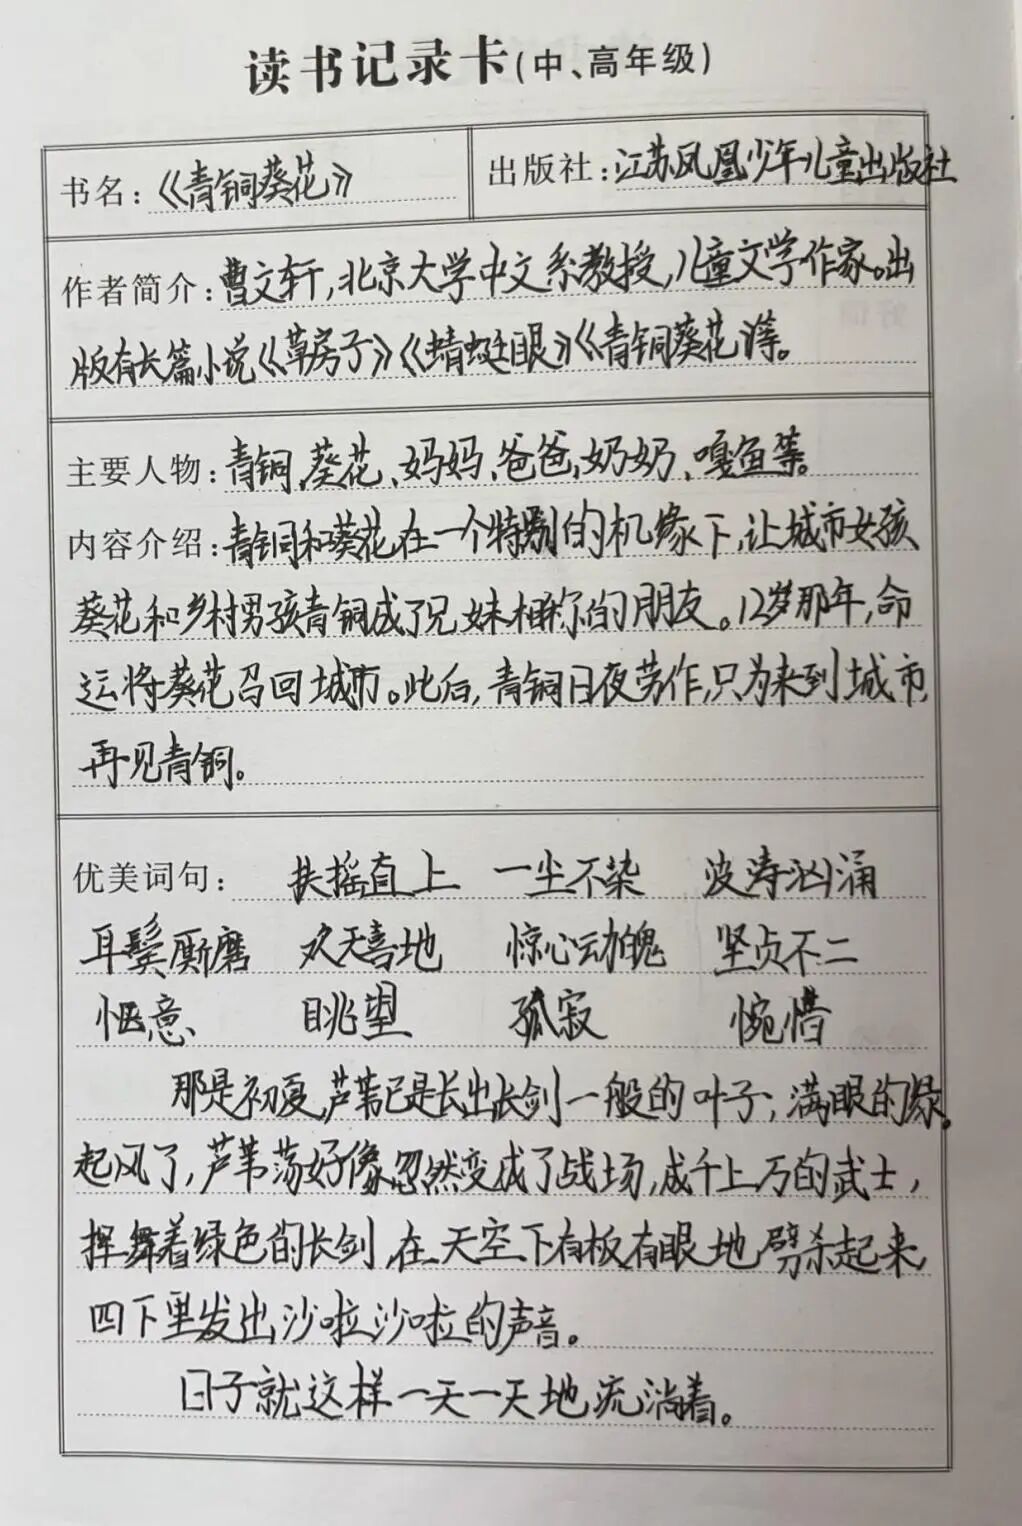 读书记录卡(中、高年级)
书名:《青铜葵花》
出版社:江苏凤凰少年儿童出版社
作者简介:曹文轩,北京大学中文系教授,儿童文学作家。出
版有长篇小说《草房子》《蜻蜓眼》《青铜葵花》等。
主要人物:青铜、葵花、妈妈、爸爸、奶奶、嘎鱼等。
内容介绍:青铜和葵花在一个特别的机缘下,让城市女孩
葵花和乡村男孩青铜成了兄妹相称的朋友。12岁那年,命
运将葵花召回城市。此后,青铜日夜劳作,只为来到城市,
再见青铜。
优美词句: 扶摇直上 一尘不染 波涛汹涌
耳鬓厮磨 欢天喜地 惊心动魄 坚贞不二
惬意 眺望 孤寂 惋惜
那是初夏,芦苇已是长出长剑一般的叶子,满眼的绿。
起风了,芦苇荡好像忽然变成了战场,成千上万的武士,
挥舞着绿色的长剑,在天空下有板有眼地劈杀起来,
四下里发出沙啦沙啦的声音。
日子就这样一天一天地流淌着。